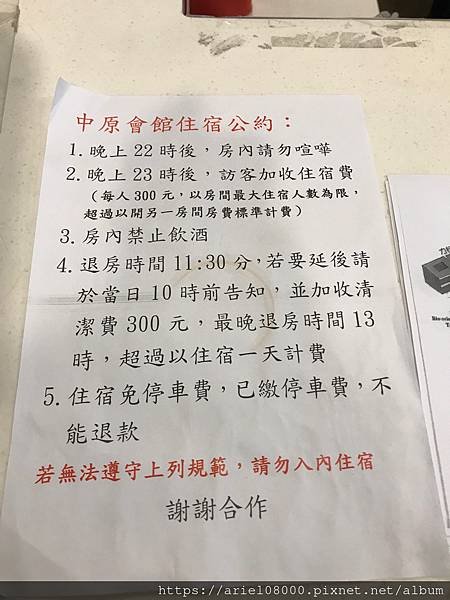 中原會館住宿公約：
1. 晚上 22 時後，房內請勿喧嘩
2. 晚上 23 時後，訪客加收住宿費
（每人 300 元，以房間最大住宿人數為限，
超過以開另一房間房費標準計費）
3. 房內禁止飲酒
4. 退房時間 11:30 分，若要延後請
於當日 10 時前告知，並加收清
潔費 300 元，最晚退房時間 13
時，超過以住宿一天計費
5. 住宿免停車費，已繳停車費，不
能退款
若無法遵守上列規範，請勿入內住宿
謝謝合作
https://ariel08000.pixnet.net/album